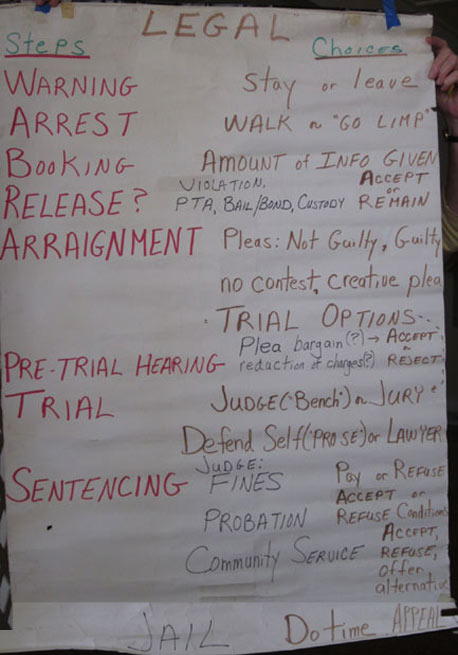 LEGAL
Steps Choices
WARNING Stay or leave
ARREST WALK or "GO LIMP"
BOOKING AMOUNT of INFO GIVEN
RELEASE? VIOLATION, PTA, BAIL/BOND, CUSTODY ACCEPT or REMAIN
ARRAIGNMENT Pleas: Not Guilty, Guilty
no contest, creative plea
TRIAL OPTIONS..
PRE-TRIAL HEARING Plea bargain(?) → ACCEPT or
reduction of charges(?) REJECT
TRIAL JUDGE("Bench") or JURY
Defend Self("PRO SE") or LAWYER
SENTENCING JUDGE:
FINES Pay or REFUSE
PROBATION ACCEPT or
REFUSE Conditions
Community SERVICE ACCEPT,
REFUSE,
offer
alternative
JAIL Do time APPEAL